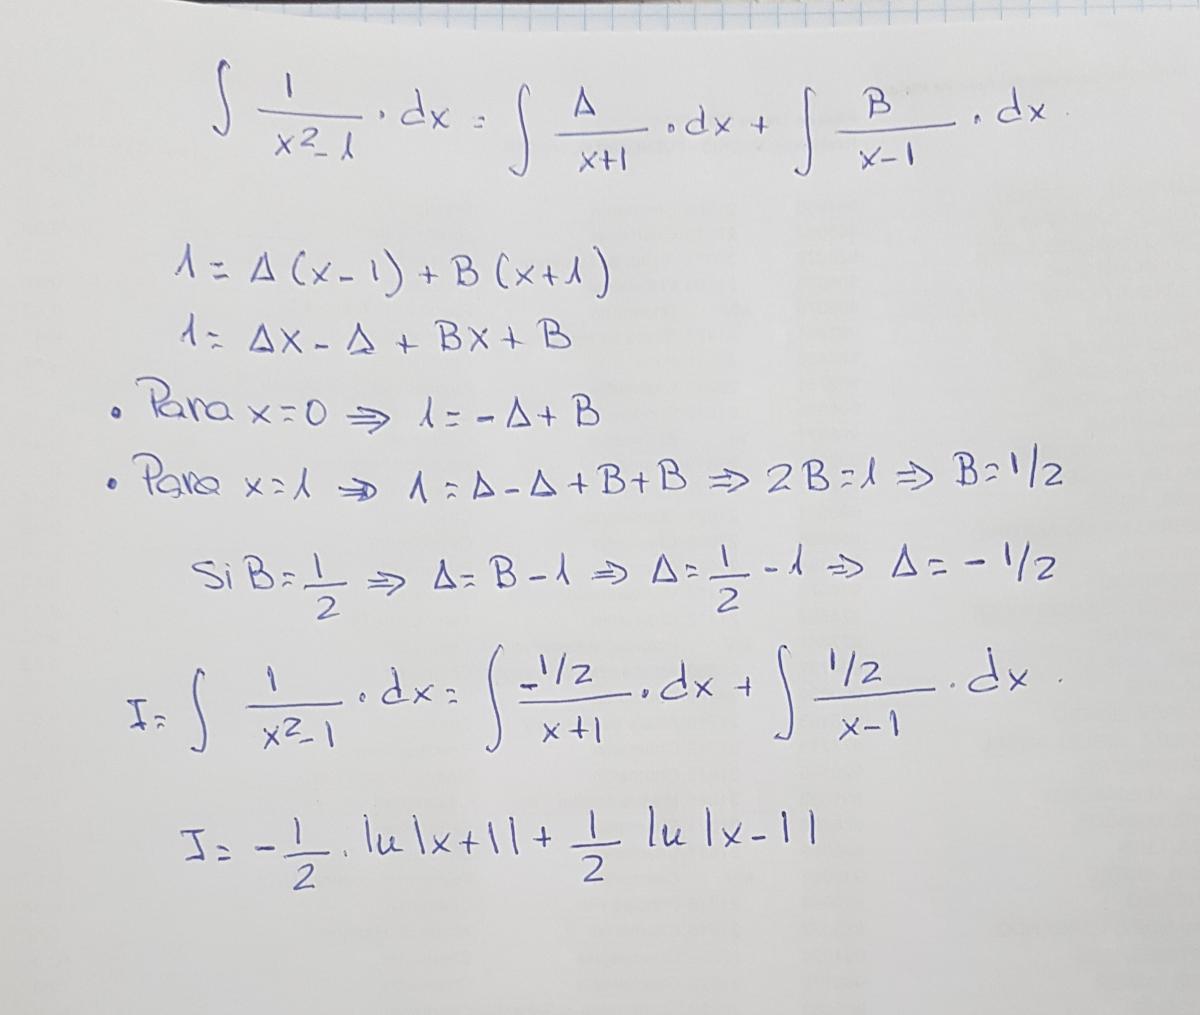 ∫ 1/(x²-1) · dx = ∫ A/(x+1) · dx + ∫ B/(x-1) · dx.
1 = A(x-1) + B(x+1)
1 = Ax - A + Bx + B
• Para x=0 ⇒ 1 = -A + B
• Para x=1 ⇒ 1 = A - A + B + B ⇒ 2B=1 ⇒ B=1/2
Si B = 1/2 ⇒ A = B - 1 ⇒ A = 1/2 - 1 ⇒ A = -1/2
I = ∫ 1/(x²-1) · dx = ∫ (-1/2)/(x+1) · dx + ∫ (1/2)/(x-1) · dx.
I = -1/2 · ln|x+1| + 1/2 ln|x-1|